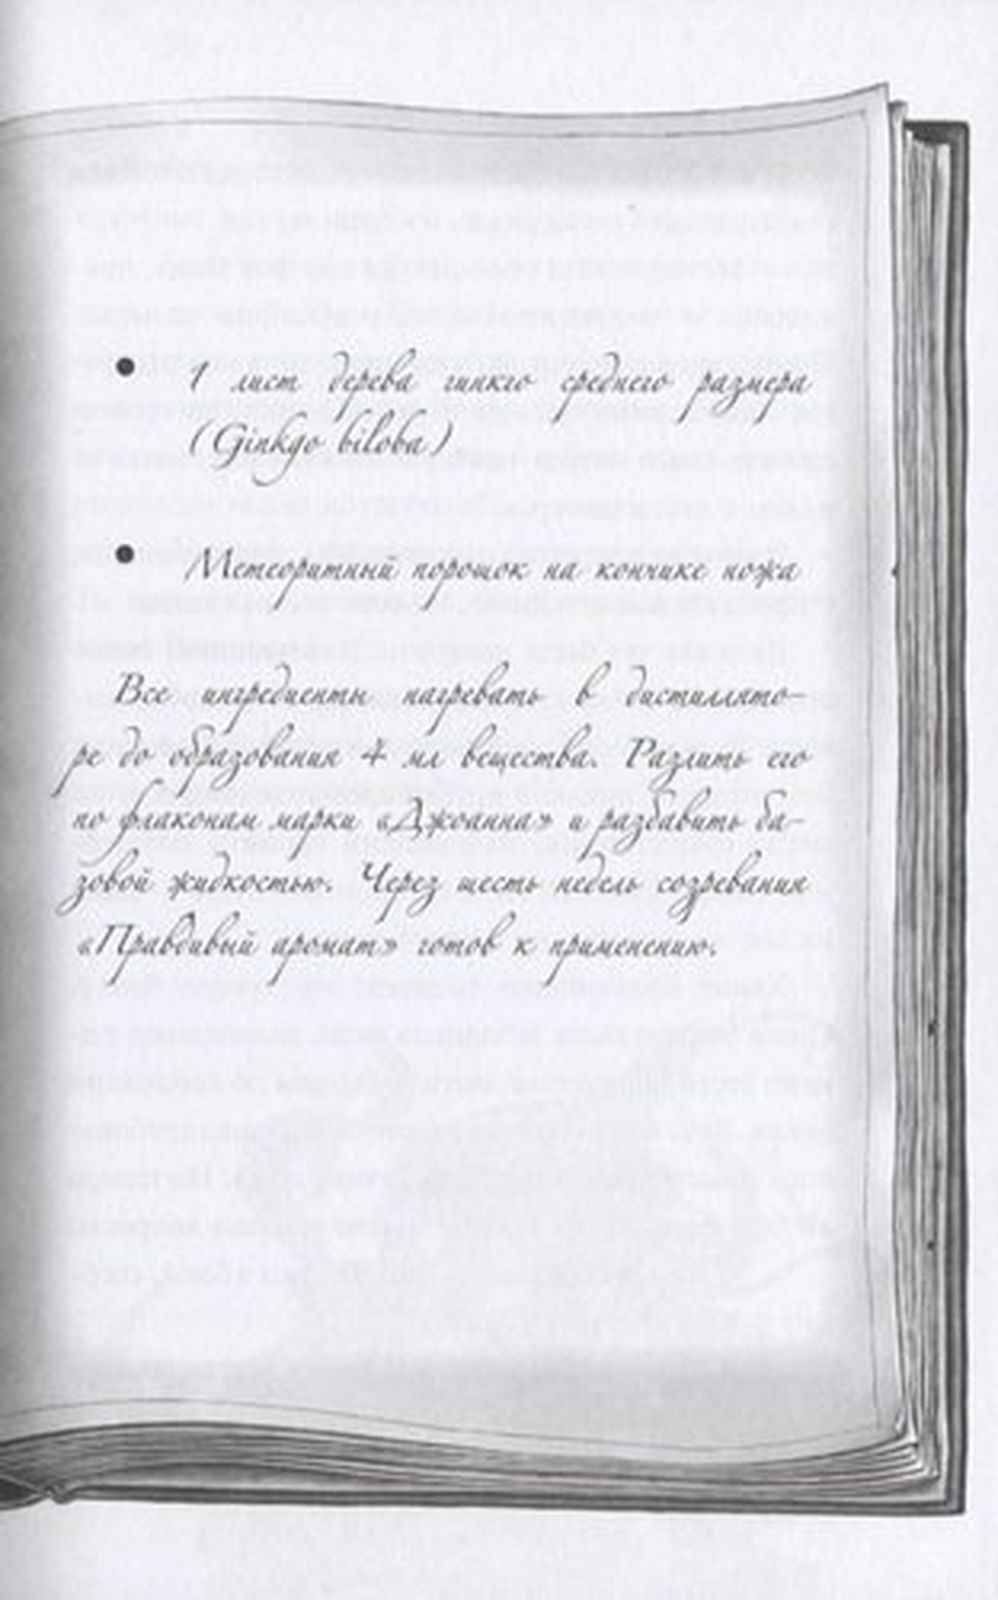 • 1 лист дерева гинкго среднего размера
(Ginkgo biloba)
• Метеоритный порошок на кончике ножа
Все ингредиенты нагревать в дистиллято-
ре до образования 4 мл вещества. Разлить его
по флаконам марки «Джоанна» и разбавить ба-
зовой жидкостью. Через шесть недель созревания
«Правдивый аромат» готов к применению.